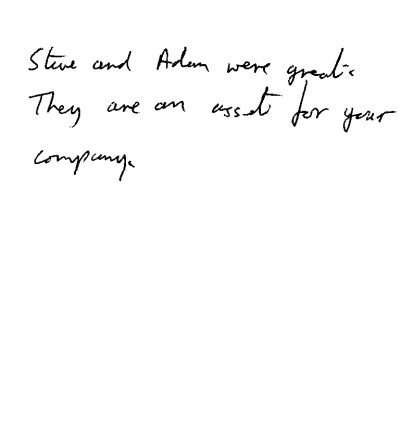 Steve and Adam were great.
They are an asset for your
company.